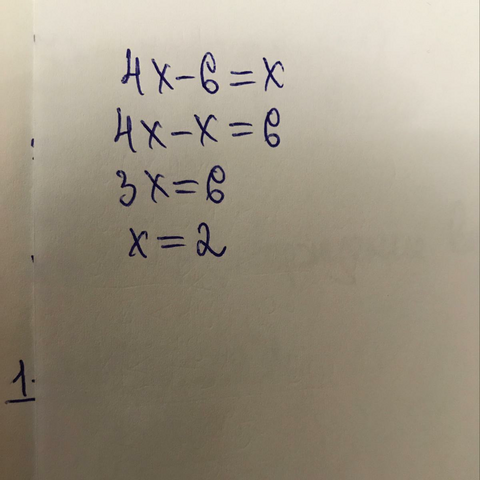 4x-6=x
4x-x=6
3x=6
x=2
1.